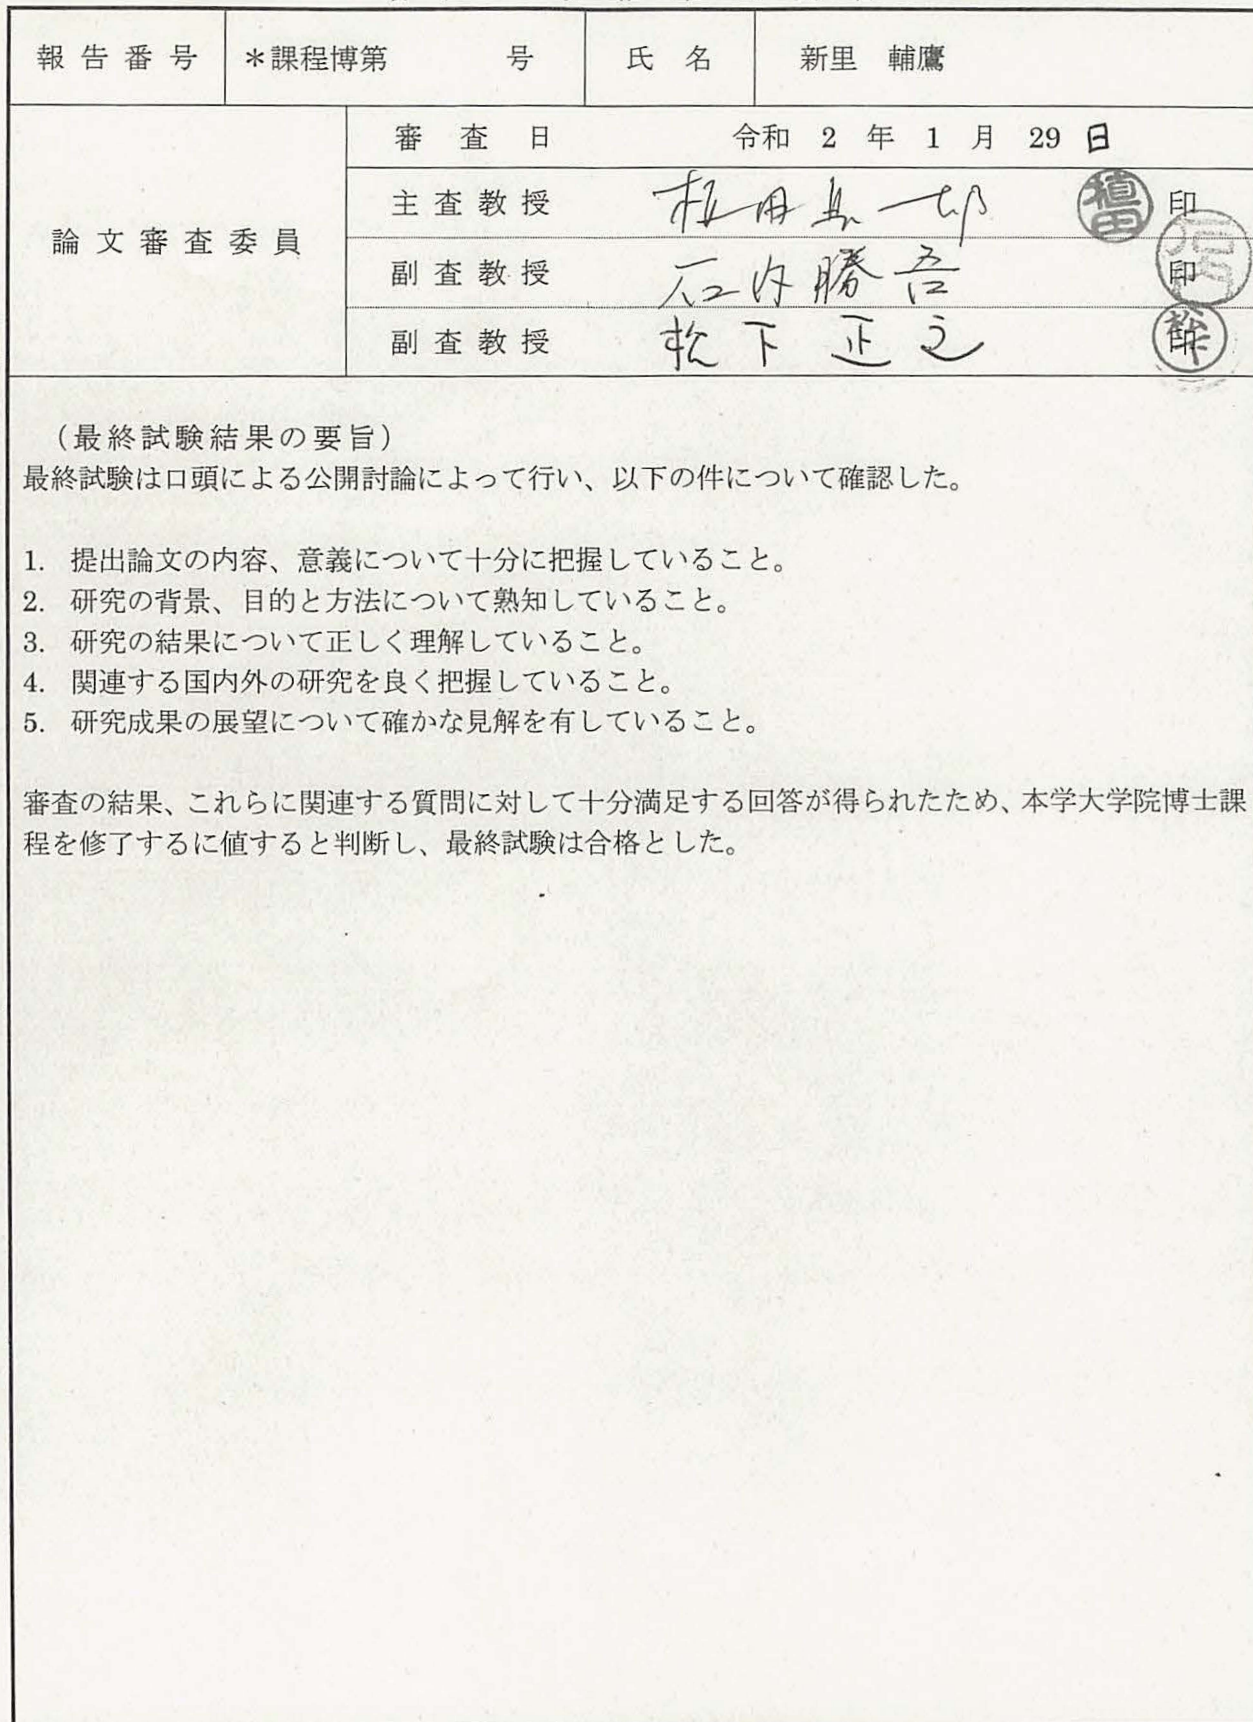 報告番号 ＊課程博第 号 氏名 新里 輔鷹
論文審査委員
審査日 令和 2 年 1 月 29 日
主査教授 植田真一郎 植田 印
副査教授 石内勝吾 石内 印
副査教授 松下正之 松下 印
（最終試験結果の要旨）
最終試験は口頭による公開討論によって行い、以下の件について確認した。
1. 提出論文の内容、意義について十分に把握していること。
2. 研究の背景、目的と方法について熟知していること。
3. 研究の結果について正しく理解していること。
4. 関連する国内外の研究を良く把握していること。
5. 研究成果の展望について確かな見解を有していること。
審査の結果、これらに関連する質問に対して十分満足する回答が得られたため、本学大学院博士課
程を修了するに値すると判断し、最終試験は合格とした。